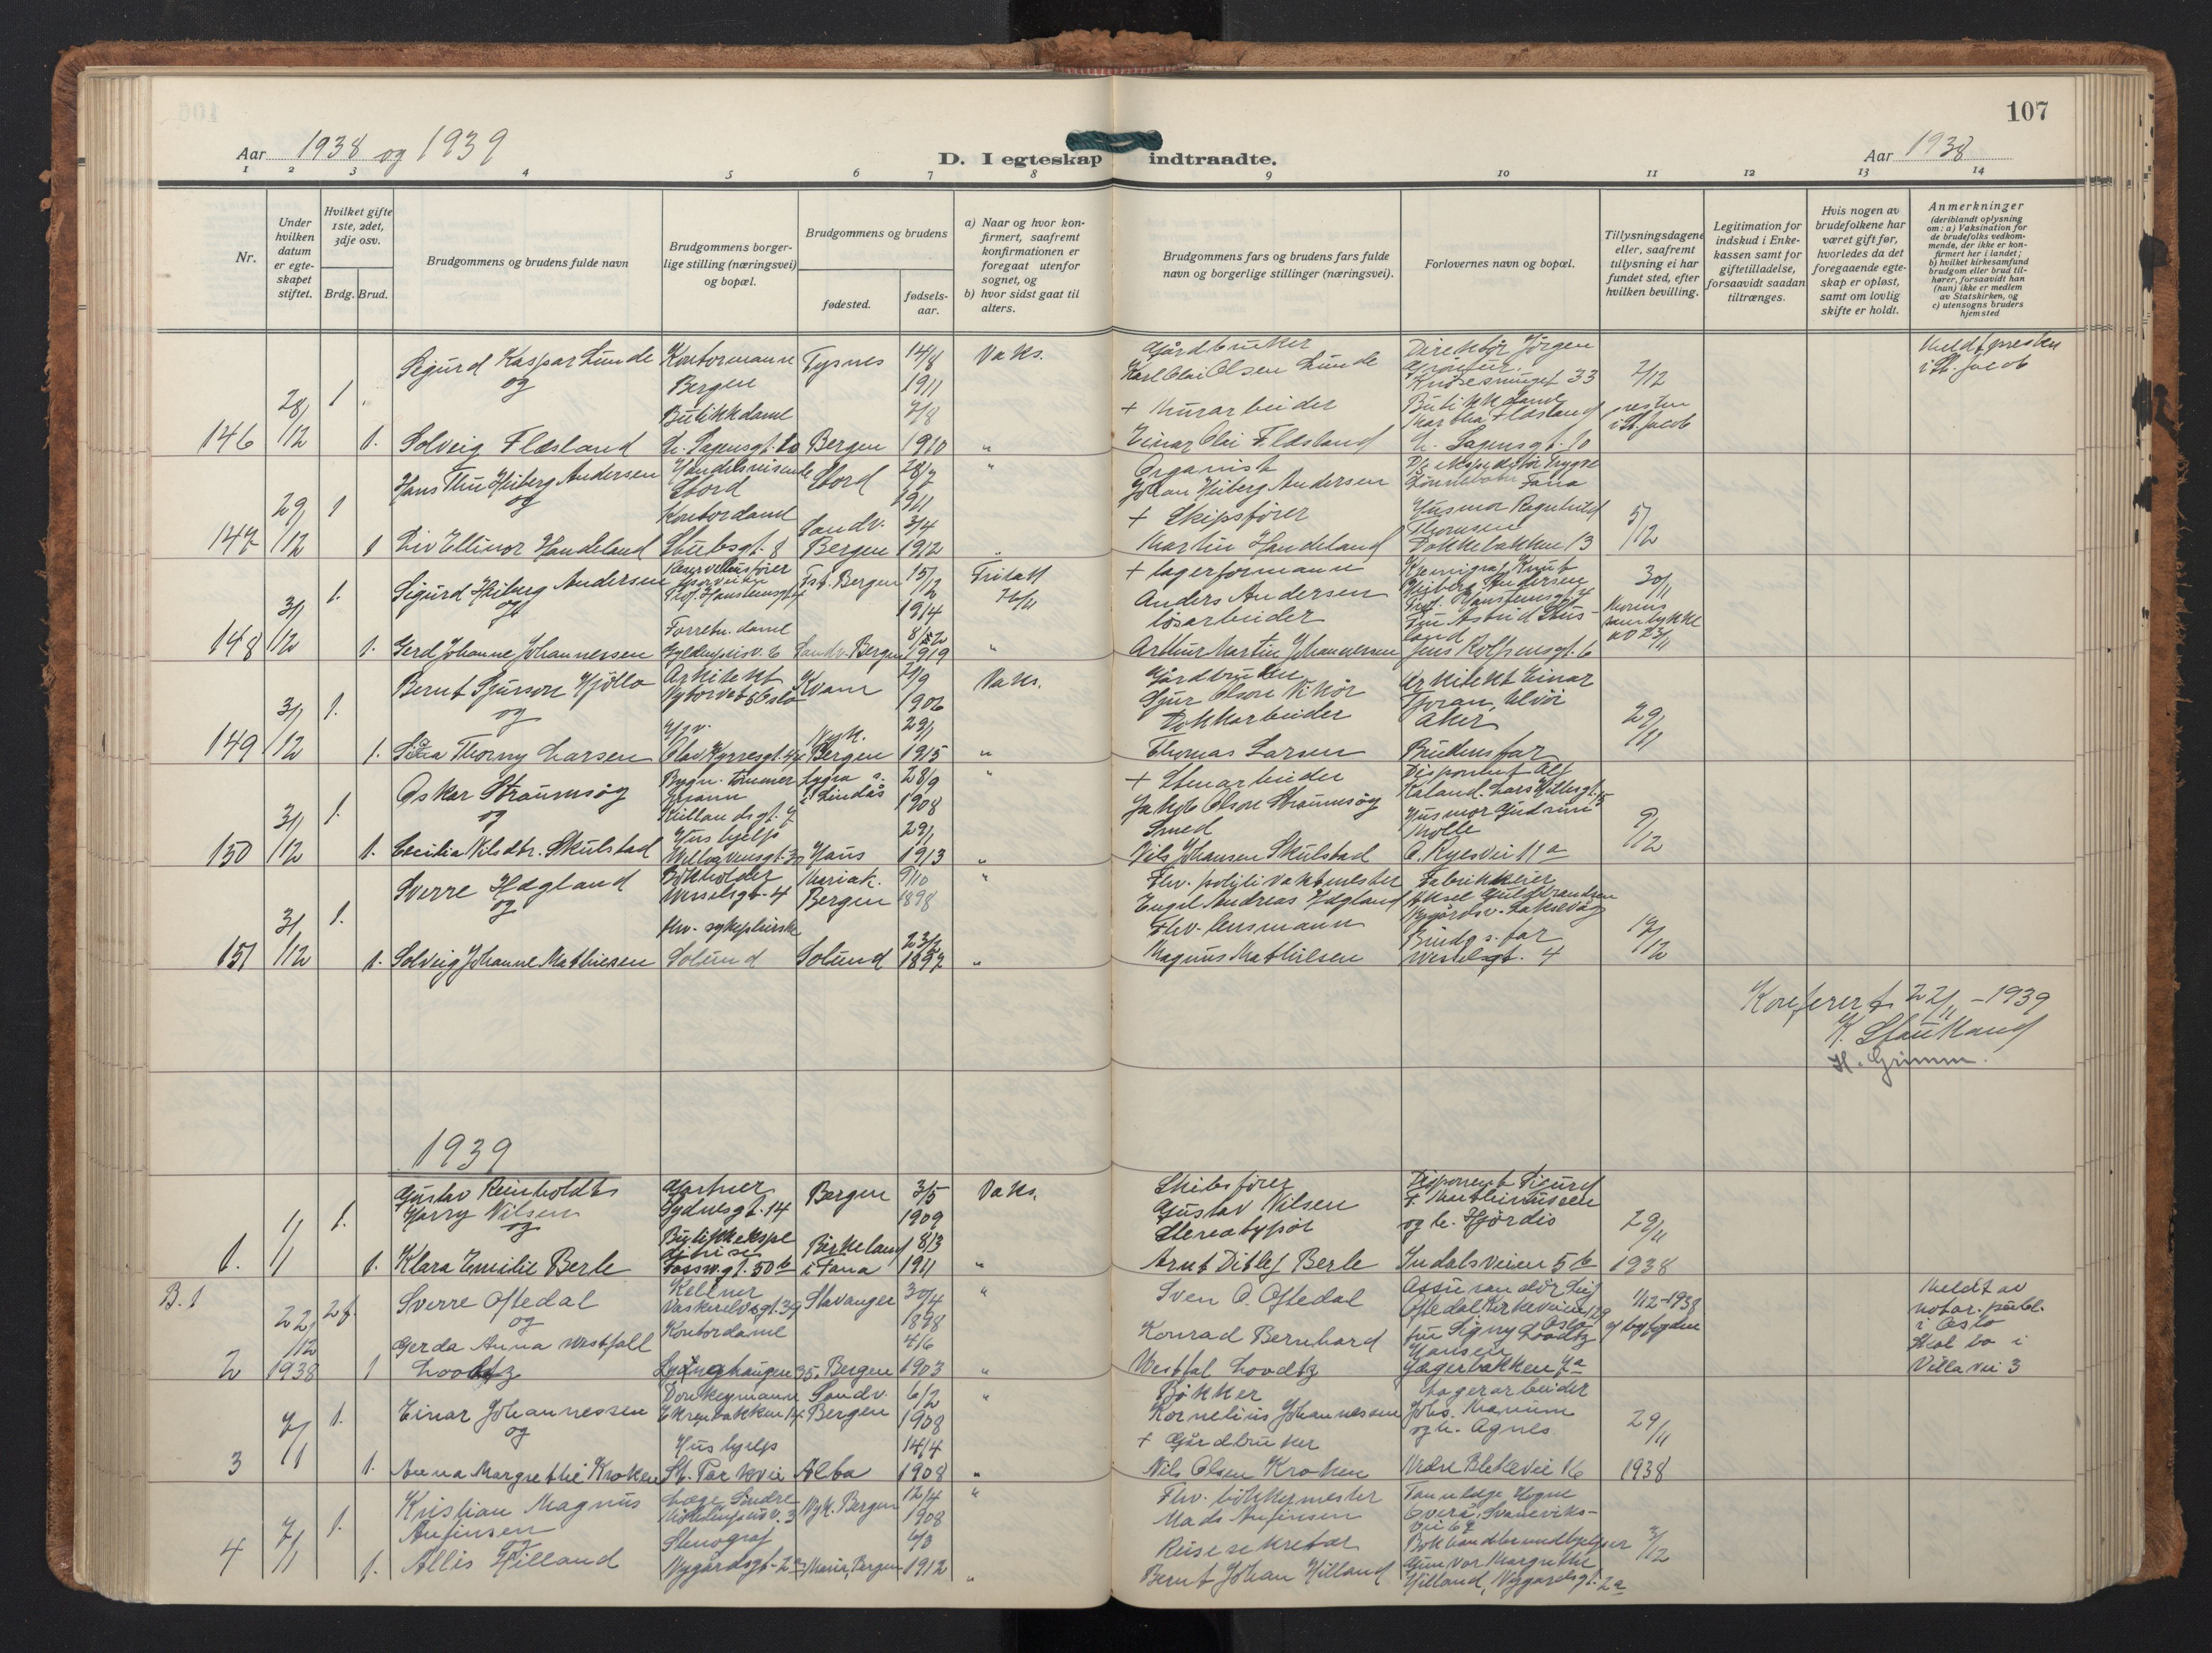 107
Aar 1938 og 1939
D. I egteskap indtraadte.
Aar 1938
1 2 3 4 5 6 7 8 9 10 11 12 13 14
Nr.
Under
hvilken
datum
er egte-
skapet
stiftet.
Hvilket gifte
1ste, 2det,
3dje osv.
Brdg. Brud.
Brudgommens og brudens fulde navn
Brudgommens borger-
lige stilling (næringsvei)
og bopæl.
Brudgommens og brudens
fødested.
fødsels-
aar.
a) Naar og hvor kon-
firmert, saafremt
konfirmationen er
foregaat utenfor
sognet, og
b) hvor sidst gaat til
alters.
Brudgommens fars og brudens fars fulde
navn og borgerlige stillinger (næringsvei).
Forlovernes navn og bopæl.
Tillysningsdagene
eller, saafremt
tillysning ei har
fundet sted, efter
hvilken bevilling.
Legitimation for
indskud i Enke-
kassen samt for
giftetilladelse,
forsaavidt saadan
tiltrænges.
Hvis nogen av
brudefolkene har
været gift før,
hvorledes da det
foregaaende egte-
skap er opløst,
samt om lovlig
skifte er holdt.
Anmerkninger
(deriblandt oplysning
om: a) Vaksination for
de brudefolks vedkom-
mende, der ikke er kon-
firmert her i landet;
b) hvilket kirkesamfund
brudgom eller brud til-
hører, forsaavidt han
(hun) ikke er medlem
av Statskirken, og
c) utensogns bruders
hjemsted
146
28/12
1.
1.
Sigurd Kaspar Lunde
og
Solveig Flesland
Kontormann
Bergen
Butikkdame
L. Sagensgt. 10
Tysnes
Bergen
14/8
1911
7/8
1910
Vaks.
"
Gårdbruker
Karl Olai Olsen Lunde
+ Murarbeider
Einar Olai Flesland
Direktør Jørgen
Knøsesmuget 33
Butikkdame
Martha Flesland
L. Sagensgt. 10
2/12
presten
i St. Jacob
Meldt presten
i St. Jacob
147
29/12
1
1
Hans Thu Heiberg Andersen
og
Liv Ellinor Handeland
Handelsreisende
Stord
Kontordame
Stubsgt. 8
Stord
Sandv.
Bergen
28/7
1911
3/4
1912
"
"
Organist
Johan Heiberg Andersen
+ Skipsfører
Martin Handeland
Fana
Husmor Ragnhild
Thomsen
Dokkebakken 13
5/12
148
31/12
1.
1.
Sigurd Heiberg Andersen
og
Gerd Johanne Johannessen
Prof. Hansteensgt. 4
Forretn. dame
Fst. Bergen
Sandv. Bergen
15/12
1914
8/12
1919
Fritatt
26/11
"
+ lagerformann
Anders Andersen
løsarbeider
Arthur Martin Johannessen
Kjemigraf Knut
Heiberg Andersen
Prof. Hansteensgt. 4
Fru Astrid Hus-
land
Jens Rolfsensgt. 6
30/11
samtykke
av 23/11
149
31/12
1.
1.
Bernt Sjurson Hjølto
og
Thorny Larsen
Arkitekt
Oslo
Hjv.
Olav Kyrresgt. 44
Kvam
Nyk.
Bergen
21/9
1906
29/1
1915
Vaks.
"
Gårdbruker
Sjur Olson Vikør
Dokkarbeider
Thomas Larsen
Arkitekt Einar
Aker
Brudens far
29/11
150
31/12
1.
1.
Oskar Straumsøy
og
Cecilia Nilsdtr. Skulstad
Bygn. tømmer
mann
Kiellandsgt. 7
Hushjelp
Lygra s.
i Lindås
Haus
28/9
1908
29/1
1913
"
"
+ Stenarbeider
Jakob Olson Straumsøy
Smed
Nils Johansen Skulstad
Disponent Alf
Kaland. Lars Hillesgt. 15
Husmor Gudrun
Molle
O. Ryesvei 11a
9/12
151
31/12
1.
1.
Sverre Hegland
og
Solveig Johanne Mathiesen
Bokholder
Wesselsgt. 4
fhv. sykepleierske
Solund
Mariak.
Bergen
Solund
9/10
1898
23/2
1897
"
"
Fhv. politivaktmester
Engel Andreas Hegland
Fhv. lensmann
Magnus Mathiesen
Fabrikkeier
Aksel Guldbrandsen
Nygårdsv. Laksevåg
Brudg.s. far
Wesselsgt. 4
12/12
Konferert 22/11 - 1939
K. Staukland
H. Grimm.
1939
1.
1/1
1.
1.
Gustav Reinholdt
Harry Nilsen
og
Klara Emilie Berle
Gartner
Sydnesgt. 14
Butikkekspe
ditrise
Fossw.gt. 50b
Bergen
Birkeland
i Fana
3/5
1909
18/3
1911
Vaks.
"
Skibsfører
Gustav Nilsen
Stereotypør
Arnt Ditlef Berle
Disponent Sigurd
F. Mathiesen
og h. Hjørdis
Indalsveien 5b
29/11
1938
B.1
2
22/12
1938
2f.
1
Sverre Oftedal
og
Gerda Anna Westfall
Loodtz
Kellner
Vaskerelvsgt. 39
Kontordame
35.
Stavanger
Bergen
30/4
1898
4/6
1903
"
"
Sven O. Oftedal
Konrad Bernhard
Westfal Loodtz
Assurandør Leif
Oftedal Kirkeveien 129
Oslo
fru Signy Loodtz
Hansen
Jægerbakken 7a
1/12-1938
av byfogden
Meldt av
notar. publ.
i Oslo
Skal bo i
Villavei 3
3
7/1
1.
1.
Einar Johannessen
og
Anna Margrethe Kroken
Donkeymann
Ekrenbakken 14
Hushjelp
St. Parkvei
Sandv.
Bergen
Alba
6/2
1908
14/4
1908
"
"
Bøkker
Kornelius Johannessen
+ Gårdbruker
Nils Olsen Kroken
Lagerarbeider
Johs. Manum
og h. Agnes
Nedre Blekevei 16
29/11
1938
4
7/1
1.
1.
Kristian Magnus
Anfinsen
og
Allis Hilland
Læge Søndre
Stenograf
Nygårdsgt. 2a
Nyk. Bergen
Maria, Bergen
12/4
1908
6/3
1912
"
"
Fhv. bøkkermester
Mads Anfinsen
Reisesekretær
Bernt Johan Hilland
Tannlæge Hogne
Overå, Svaneviks-
vei 69
Gunvor Margrethe
Hilland, Nygårdsgt. 2a
3/12